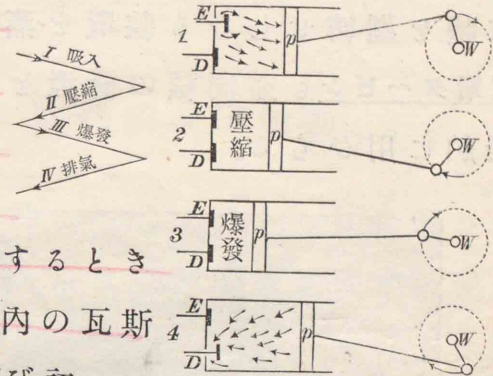 I 吸入
II 壓縮
III 爆發
IV 排氣
1 E D p W
2 E D 壓縮 p W
3 E D 爆發 p W
4 E D p W
するとき
內の瓦斯